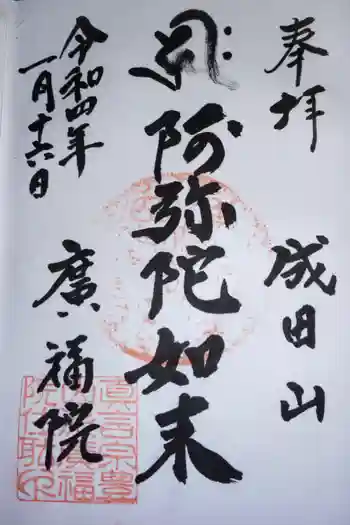 奉拝
成田山
阿弥陀如来
令和四年
一月十六日
廣福院